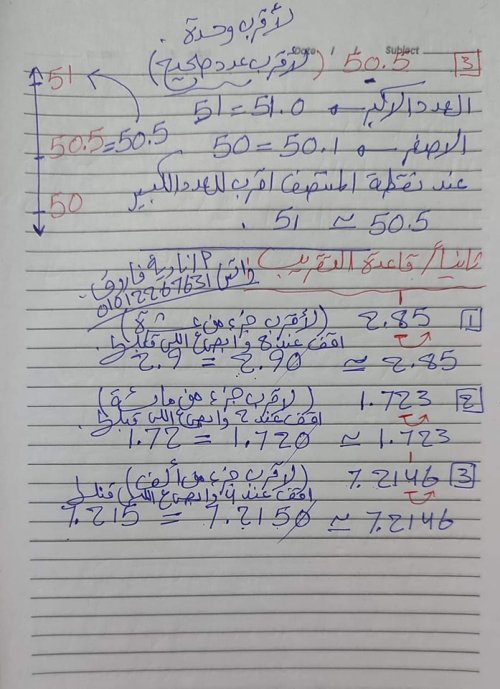 لأقرب وحدة.
Date / / Subject
[3] 50.5 (لأقرب عدد صحيح)
51
العدد الأكبر ← 51.0 = 51
50.5 = 50.5
الأصغر ← 50.1 = 50
50
عند نقطة المنتصف أقرب للعدد الكبير
50.5 ≃ 51 .
ثانياً / قاعدة التقريب
P/نادية فاروق
واتس
[1] 2.85 (لأقرب جزء من عشرة)
اقف عند 8 وابص ع اللي قبلها
2.85 ≃ 2.90 = 2.9
[2] 1.723 (لأقرب جزء من مائة)
اقف عند 2 وابص ع اللي قبلها
1.723 ≃ 1.720 = 1.72
[3] 7.2146 (لأقرب جزء من ألف)
اقف عند 4 وابص ع اللي قبلها
7.2146 ≃ 7.2150 = 7.215